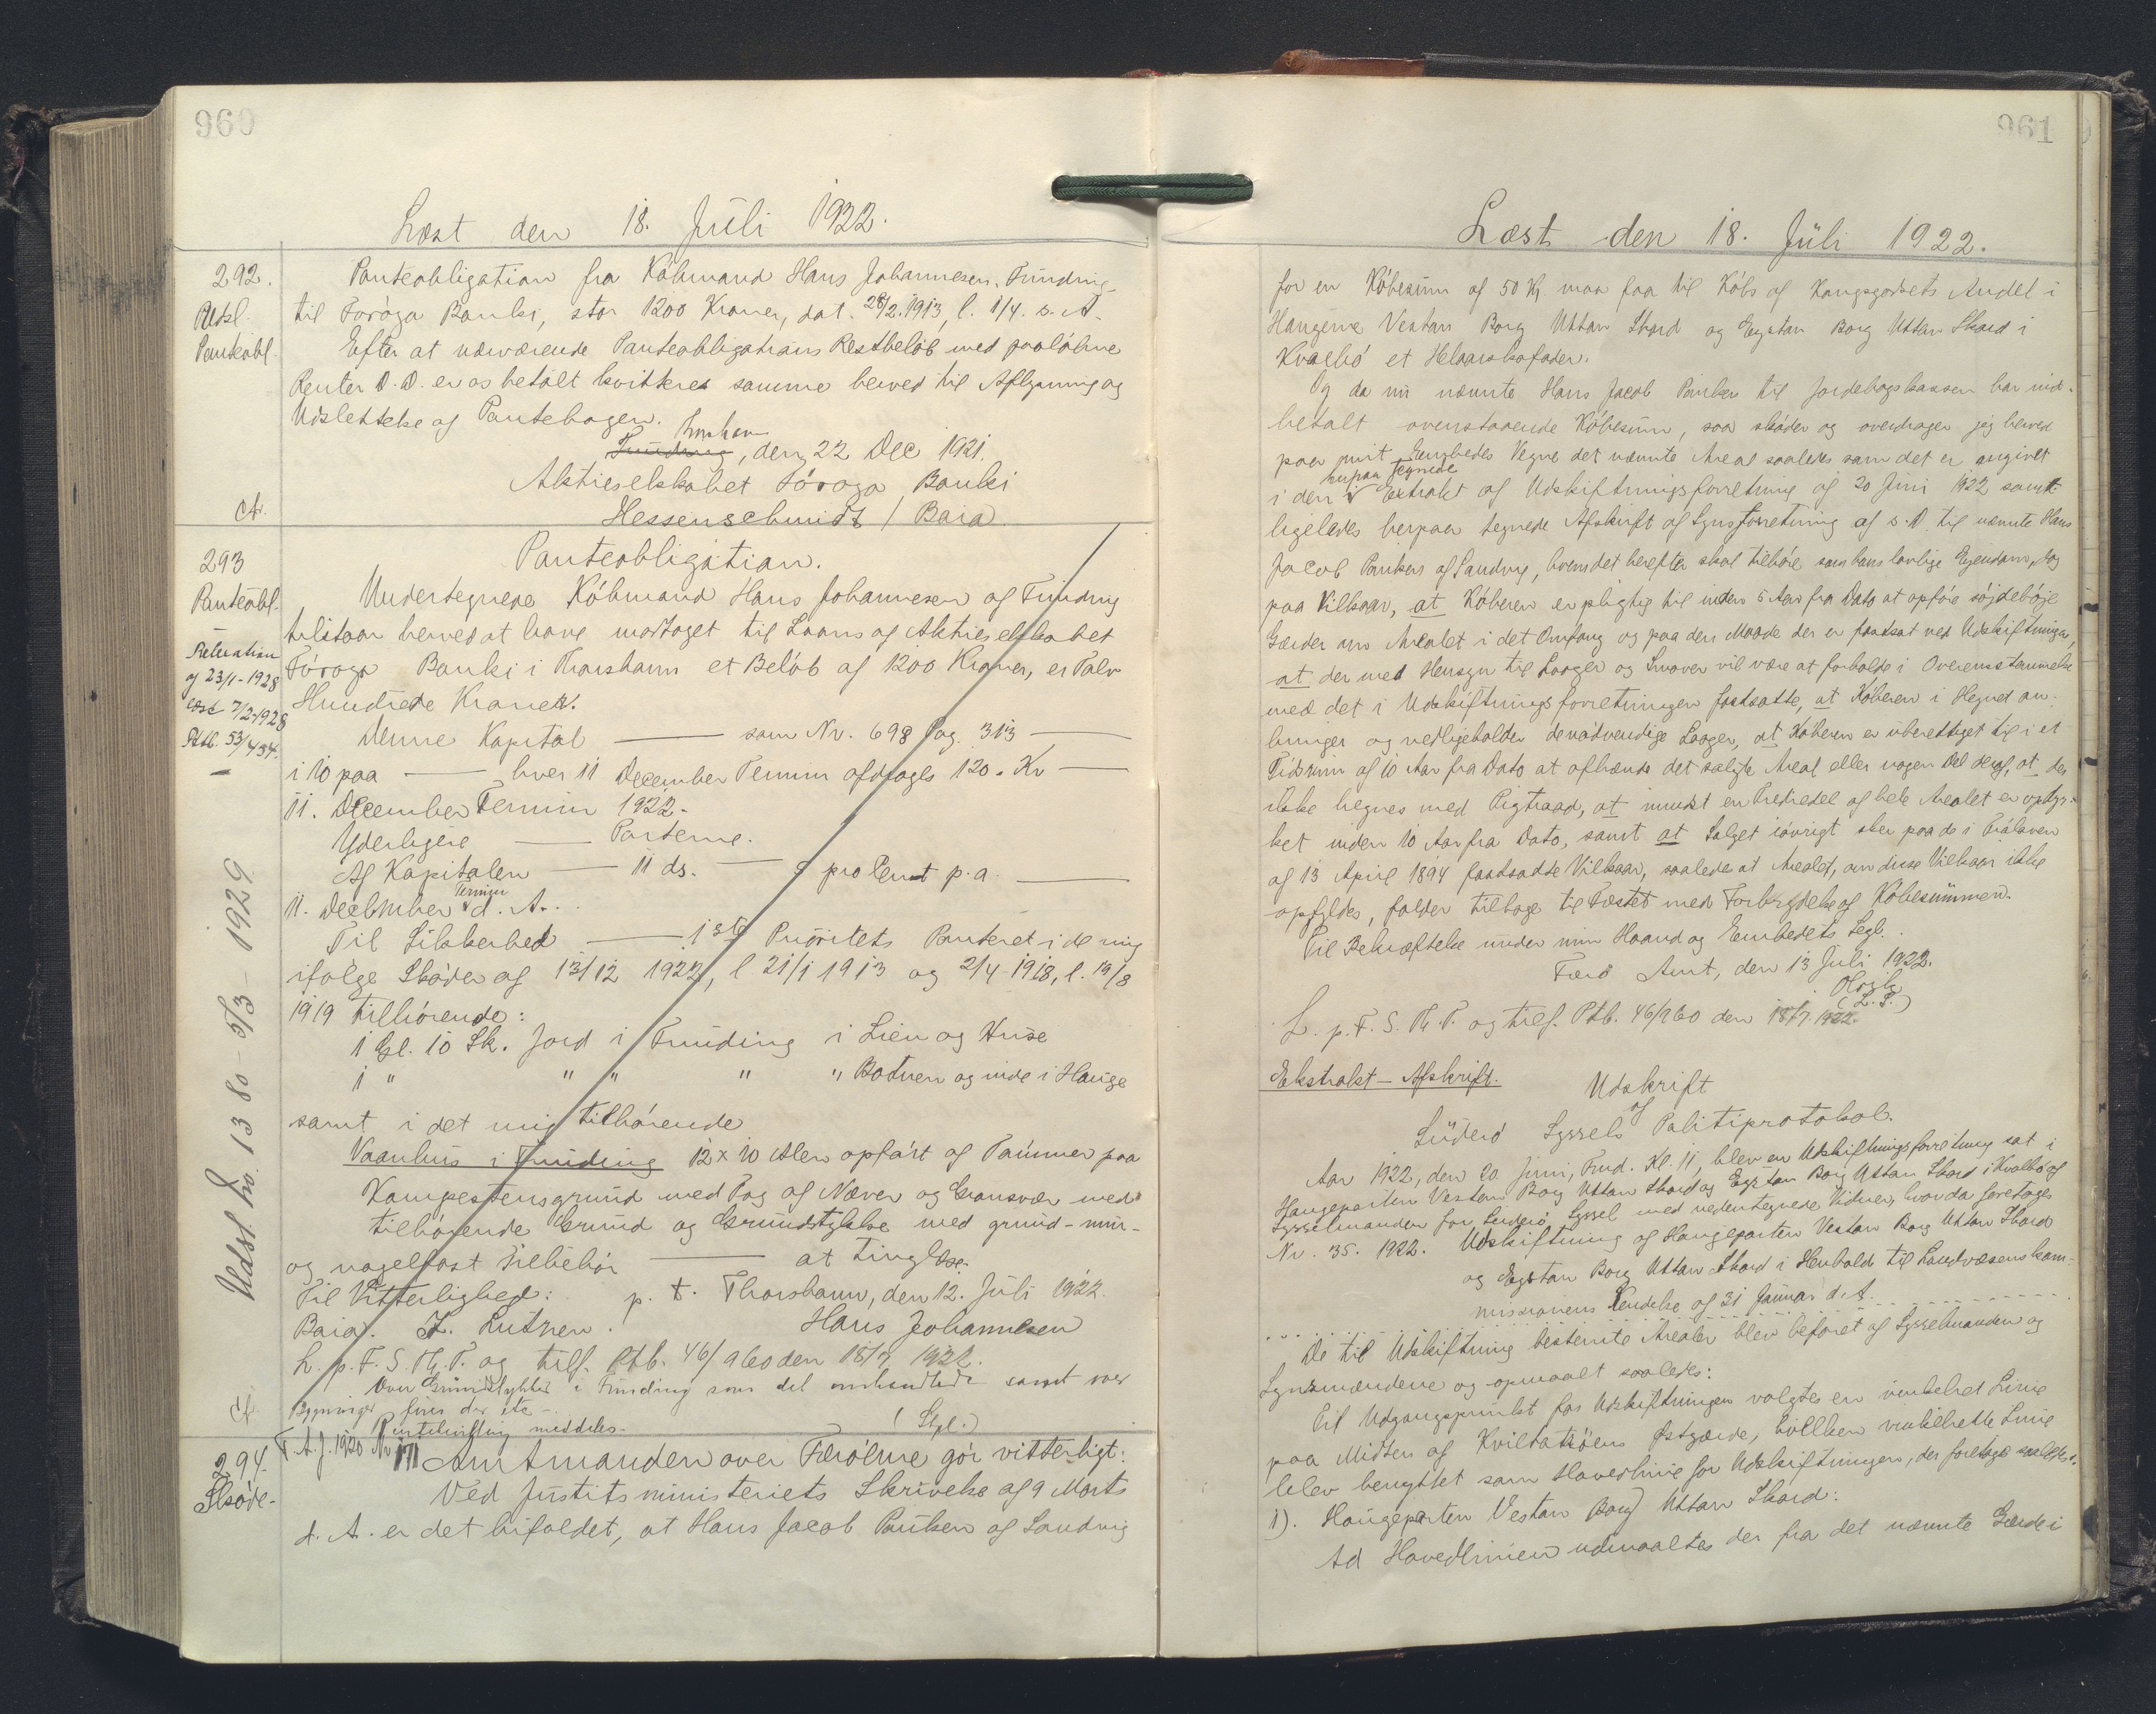 960
Læst den 18. Juli 1922.
292.
Udsl.
Panteobl.
Panteobligation fra Købmand Hans Johannesen, Funding,
til Føroya Banki, stor 1200 Kroner, dat. 28/2 1913, l. 1/4. s. A.
Efter at nærværende Panteobligations Restbeløb med paaløbne
Renter D. D. er os betalt kvitteres samme herved til Aflysning og
Udslettelse af Pantebogen.
Thorshavn
Funding, den 22 Dec 1921.
Aktieselskabet Føroya Banki
Hessenschmidt / Baia
Cf.
293
Panteobl.
Panteobligation.
Undertegnede Købmand Hans Johannesen af Funding
tilstaar herved at have modtaget til Laans af Aktieselskabet
Føroya Banki i Thorshavn et Beløb af 1200 Kroner, er Tolv
Hundrede Kroner.
af 23/1-1928
læst 7/2-1928
Ptb. 53/434.
Denne Kapital — som Nr. 698 Pag. 313 —
i 10 paa — hver 11 December Termin afdrages 120. Kr —
11. December Termin 1922.
Yderligere — Parterne.
Af Kapitalen — 11 ds. — 5 pro Cent p. a. —
11. December Termin d. A.
Til Sikkerhed — 1ste Prioritets Panteret i de mig
ifølge Skøder af 13/12 1922, l 21/1 1913 og 2/4-1918, l. 19/8
1919 tilhørende:
1 Gl. 10 Sk. Jord i Funding i Lien og Huse
1 " " " " " Botnen og inde i Hauge
samt i det mig tilhørende
Vaanhus i Funding 12 x 10 Alen opført af Tømmer paa
Kampestensgrund med Tag af Næver og Grønsvær med
tilhørende Grund og Grundstykke med grund- mur-
og nagelfast Tilbehør — at tinglæse.
Til Vitterlighed: p. t. Thorshavn, den 12. Juli 1922.
Baia. Z. Lützen. Hans Johannesen
L. p. F. S. Th. T. og tilf. Ptb. 46/960 den 18/7 1922.
Over Grundstykket i Funding som det omhandlede samt over
Bygninger fines der ite -
meddeles.
(Stpl.)
Cf.
Udsl. No. 1380 - 5/3 - 1929
294.
Skøde.
F. A. J. 1920 Nr 171 Amtmanden over Færøerne gør vitterligt:
Ved Justitsministeriets Skrivelse af 9 Marts
d. A. er det bifaldet, at Hans Jacob Poulsen af Sandvig
961
Læst den 18. Juli 1922.
for en Købesum af 50 Kr maa faa til Købs af Kongsgodsets Andel i
Haugerne Vestan Borg Uttan Skard og Eystan Borg Uttan Skard i
Kvalbø et Helaarskofoder.
Og da nu nævnte Hans Jacob Poulsen til Jordebogskassen har ind-
betalt ovenstaaende Købesum, saa skøder og overdrager jeg herved
paa mit Embedes Vegne det nævnte Areal saaledes som det er angivet
i den herpaa tegnede Extrakt af Udskiftningsforretning af 20 Juni 1922 samt
ligeledes herpaa tegnede Afskrift af Synsforretning af s. D. til nævnte Hans
Jacob Poulsen af Sandvig, hvem det herefter skal tilhøre som hans lovlige Ejendom, dog
paa Vilkaar, at Køberen er pligtig til inden 5 Aar fra Dato at opføre
Gærder om Arealet i det Omfang og paa den Maade der er fastsat ved Udskiftningen,
at der med Hensyn til Laager og Snover vil være at forholde i Overensstemmelse
med det i Udskiftningsforretningen fastsatte, at Køberen i Hegnet an-
bringer og vedligeholder de nødvendige Laager, at Køberen er uberettiget til i et
Tidsrum af 10 Aar fra Dato at afhænde det solgte Areal eller nogen Del deraf, at der
ikke hegnes med Pigtraad, at mindst en Trediedel af hele Arealet er opdyr-
ket inden 10 Aar fra Dato, samt at Salget iøvrigt sker paa de i
af 13 April 1894 fastsatte Vilkaar, saaledes at Arealet, om disse Vilkaar ikke
opfyldes, falder tilbage til Fæstet med Forbrydelse af Købesummen.
Til Bekræftelse under min Haand og Embedets Segl.
Færø Amt, den 13 Juli 1922.
(L. S.)
L. p. F. S. Th. T. og tilf. Ptb. 46/960 den 18/7. 1922.
Ekstrakt - Afskrift.
Udskrift
af
Suderø Syssels Politiprotokol.
Aar 1922, den 20. Juni, Fmd. Kl. 11, blev en Udskiftningsforretning sat i
Haugeparten Vestan Borg Uttan Skard og Eystan Borg Uttan Skard i Kvalbø af
Sysselmanden for Suderø Syssel med nedentegnede Vidner, hvorda foretages
Nr. 35. 1922. Udskiftning af Haugeparten Vestan Borg Uttan Skard
og Eystan Borg Uttan Skard i Henhold til Landvæsenskom-
missionens Kendelse af 31 Januar d. A. . . . . . . . .
De til Udskiftning bestemte Arealer blev beføret af Sysselmanden og
Synsmændene og opmaalt saaledes:
Til Udgangspunkt for Udskiftningen valgtes en vinkelret Linie
paa Midten af Østgærde, hvilken vinkelrette Linie
blev benyttet som Hovedlinie for Udskiftningen, der foretoges saaledes.
1). Haugeparten Vestan Borg Uttan Skard:
Ad Hovedlinien udmaaltes der fra det nævnte Gærde i